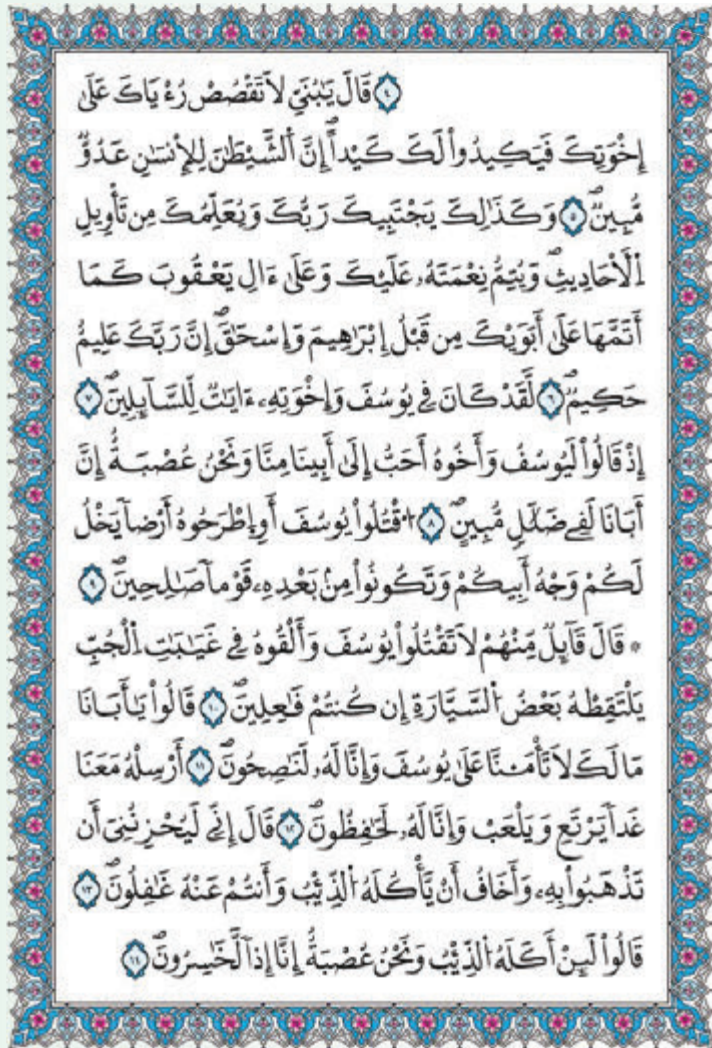 ﴿٤﴾ قَالَ يَٰبُنَيِّ لَا تَقْصُصْ رُءْيَاكَ عَلَىٰ
إِخْوَتِكَ فَيَكِيدُواْ لَكَ كَيْداًۖ إِنَّ اَ۬لشَّيْطَٰنَ لِلْإِنسَٰنِ عَدُوّٞ
مُّبِينٞۖ ﴿٥﴾ وَكَذَٰلِكَ يَجْتَبِيكَ رَبُّكَ وَيُعَلِّمُكَ مِن تَأْوِيلِ
اِ۬لْأَحَادِيثِۖ وَيُتِمُّ نِعْمَتَهُۥ عَلَيْكَ وَعَلَىٰ ءَالِ يَعْقُوبَ كَمَا
أَتَمَّهَا عَلَىٰ أَبَوَيْكَ مِن قَبْلُ إِبْرَٰهِيمَ وَإِسْحَٰقَۖ إِنَّ رَبَّكَ عَلِيمٌ
حَكِيمٞۖ ﴿٦﴾ لَّقَدْ كَانَ فِے يُوسُفَ وَإِخْوَتِهِۦ ءَايَٰتٞ لِّلسَّآئِلِينَۖ ﴿٧﴾
إِذْ قَالُواْ لَيُوسُفُ وَأَخُوهُ أَحَبُّ إِلَىٰ أَبِينَا مِنَّا وَنَحْنُ عُصْبَةٌۖ إِنَّ
أَبَانَا لَفِے ضَلَٰلٖ مُّبِينٍۖ ﴿٨﴾ اُ۟قْتُلُواْ يُوسُفَ أَوِ اِ۪طْرَحُوهُ أَرْضاٗ يَخْلُ
لَكُمْ وَجْهُ أَبِيكُمْ وَتَكُونُواْ مِنۢ بَعْدِهِۦ قَوْماٗ صَٰلِحِينَۖ ﴿٩﴾
۞ قَالَ قَآئِلٞ مِّنْهُمْ لَا تَقْتُلُواْ يُوسُفَ وَأَلْقُوهُ فِے غَيَٰبَٰتِ اِ۬لْجُبِّ
يَلْتَقِطْهُ بَعْضُ اُ۬لسَّيَّارَةِ إِن كُنتُمْ فَٰعِلِينَۖ ﴿١٠﴾ قَالُواْ يَٰأَبَانَا
مَا لَكَ لَا تَأْمَ۬نَّا عَلَىٰ يُوسُفَ وَإِنَّا لَهُۥ لَنَٰصِحُونَۖ ﴿١١﴾ أَرْسِلْهُ مَعَنَا
غَداٗ يَرْتَعِ وَيَلْعَبْ وَإِنَّا لَهُۥ لَحَٰفِظُونَۖ ﴿١٢﴾ قَالَ إِنِّے لَيُحْزِنُنِىٓ أَن
تَذْهَبُواْ بِهِۦ وَأَخَافُ أَنْ يَّأْكُلَهُ اُ۬لذِّئْبُ وَأَنتُمْ عَنْهُ غَٰفِلُونَۖ ﴿١٣﴾
قَالُواْ لَئِنْ أَكَلَهُ اُ۬لذِّئْبُ وَنَحْنُ عُصْبَةٌ إِنَّآ إِذاٗ لَّخَٰسِرُونَۖ ﴿١٤﴾